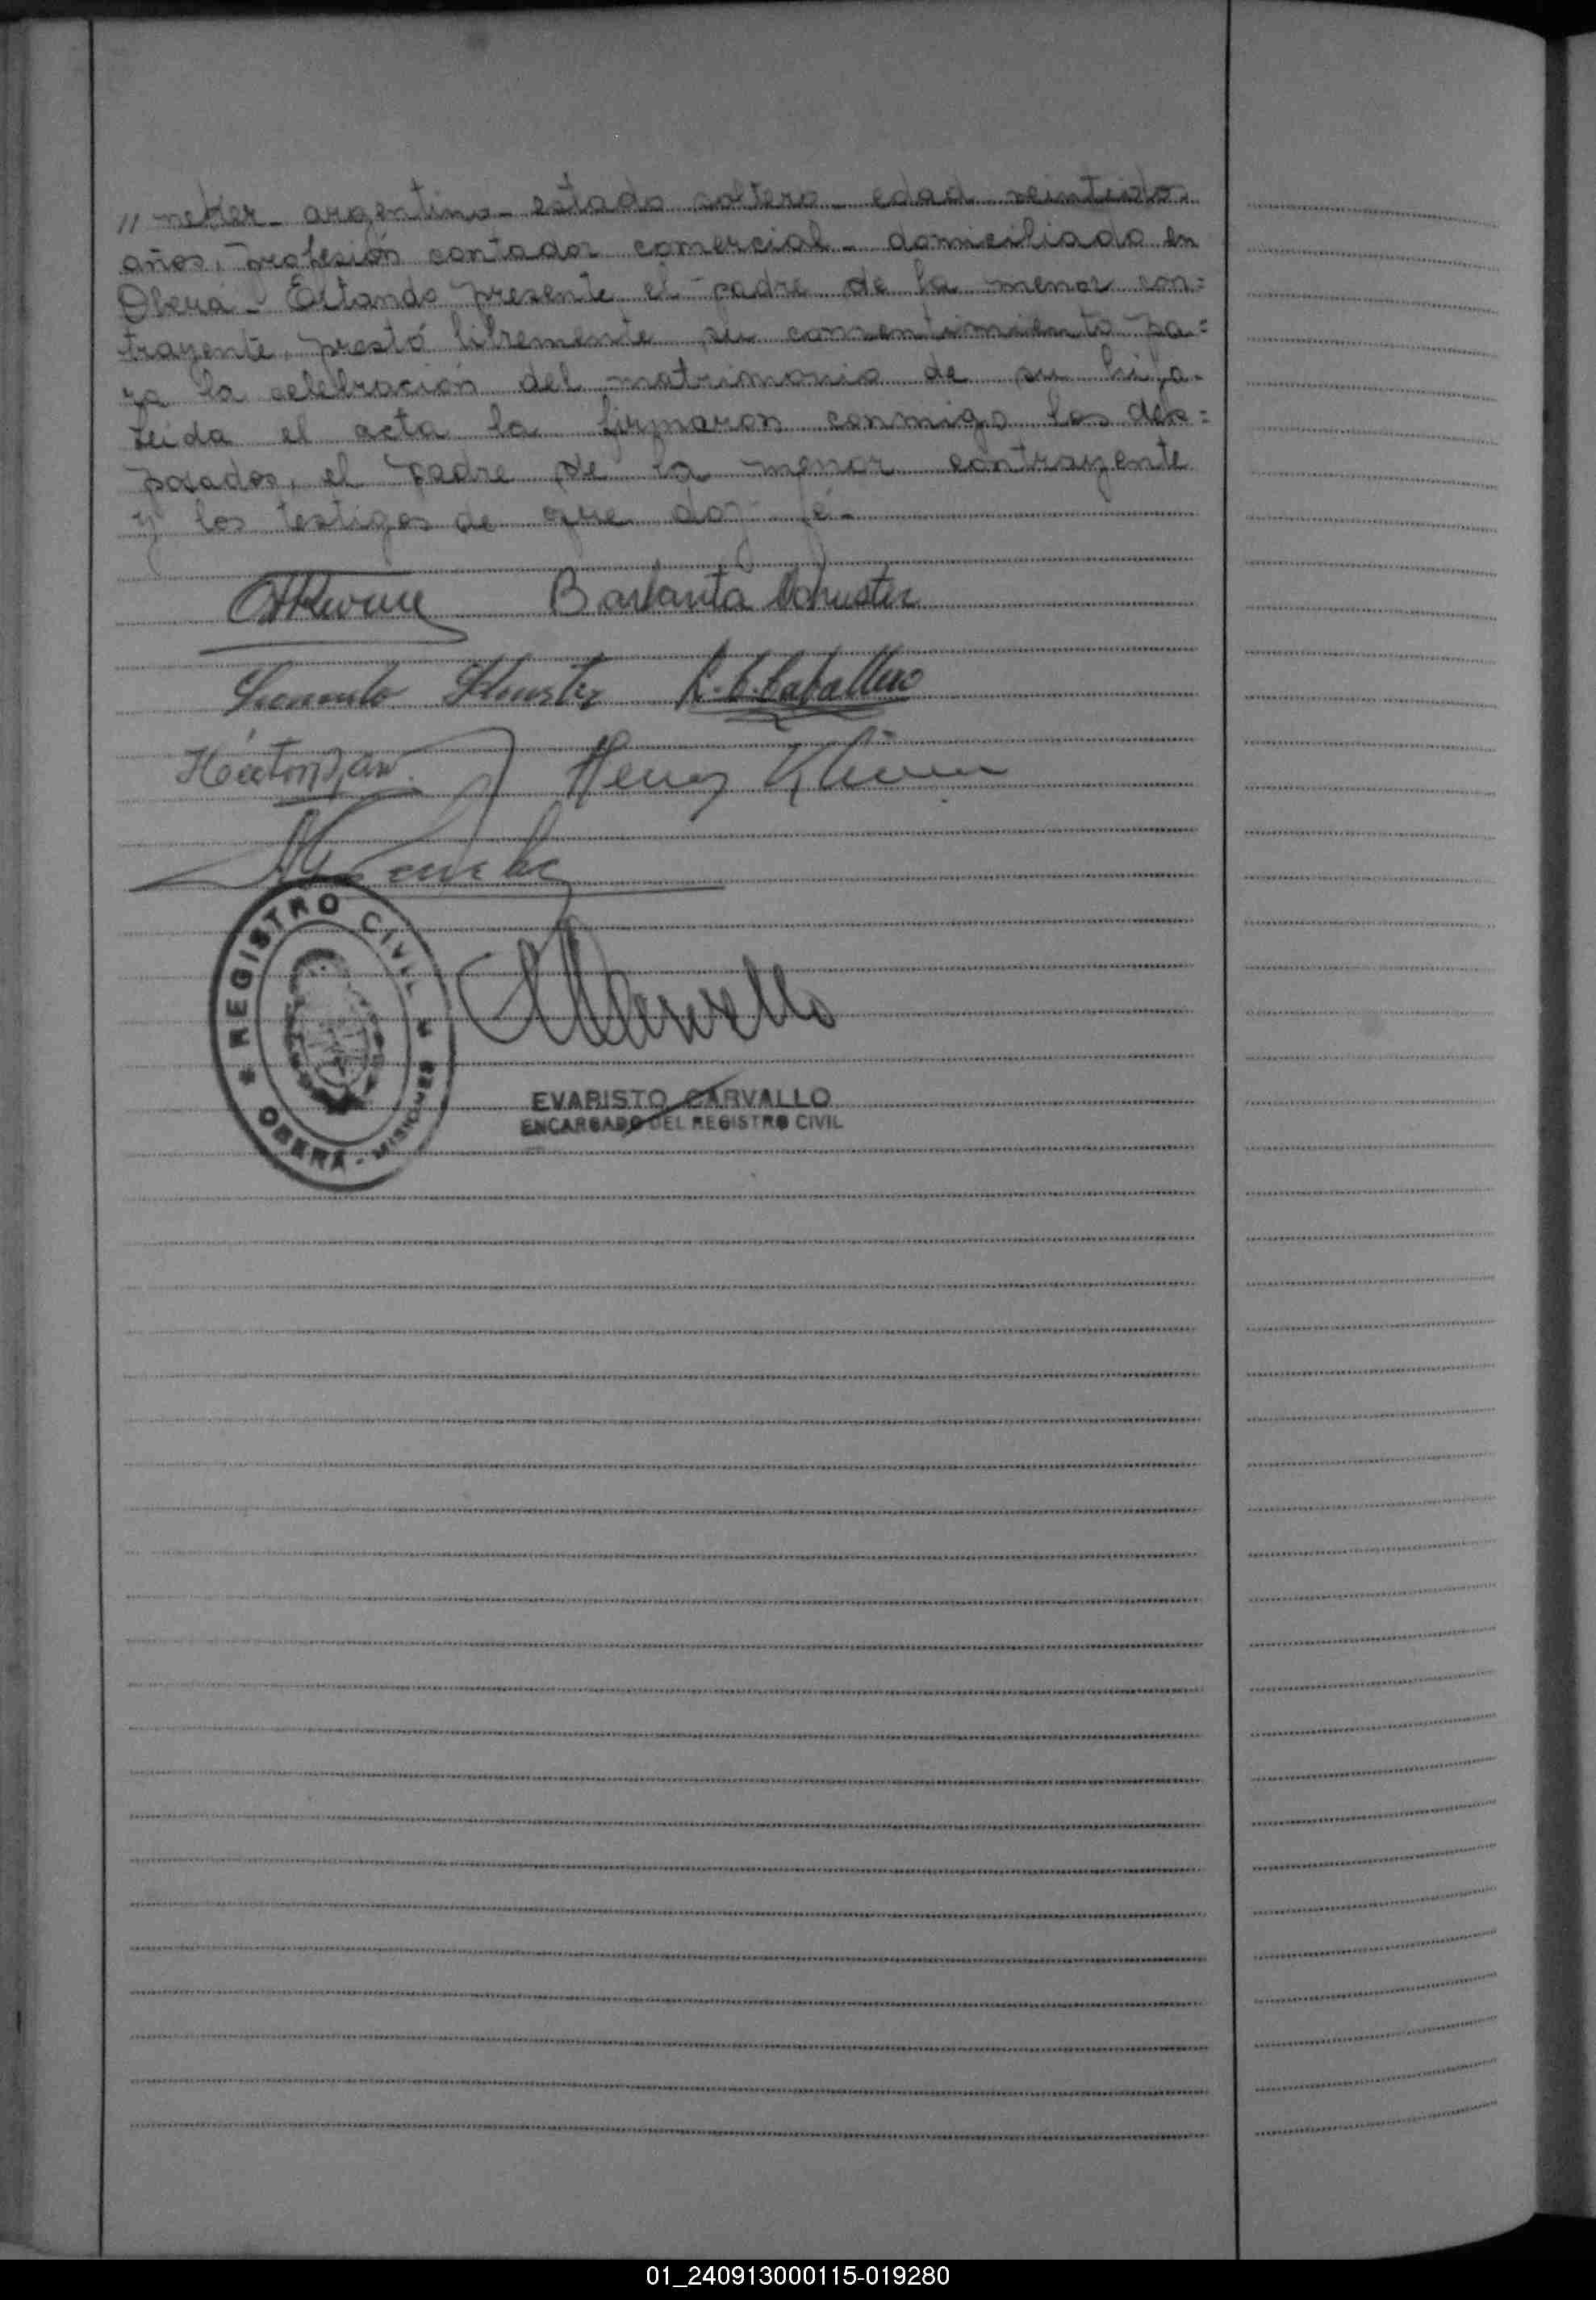 // netker - argentino - estado soltero - edad veintidos
años, profesión contador comercial - domiciliado en
Oberá - Estando presente el padre de la menor con=
trayente, prestó libremente su consentimiento pa=
ra la celebración del matrimonio de su hija -
Leída el acta la firmaron conmigo los des=
posados, el padre de la menor contrayente
y los testigos de que doy fé -
Schuster
Schuster Caballero
Héctor Henry
REGISTRO CIVIL
OBERA - MISIONES
EVARISTO CARVALLO
ENCARGADO DEL REGISTRO CIVIL
01_240913000115-019280